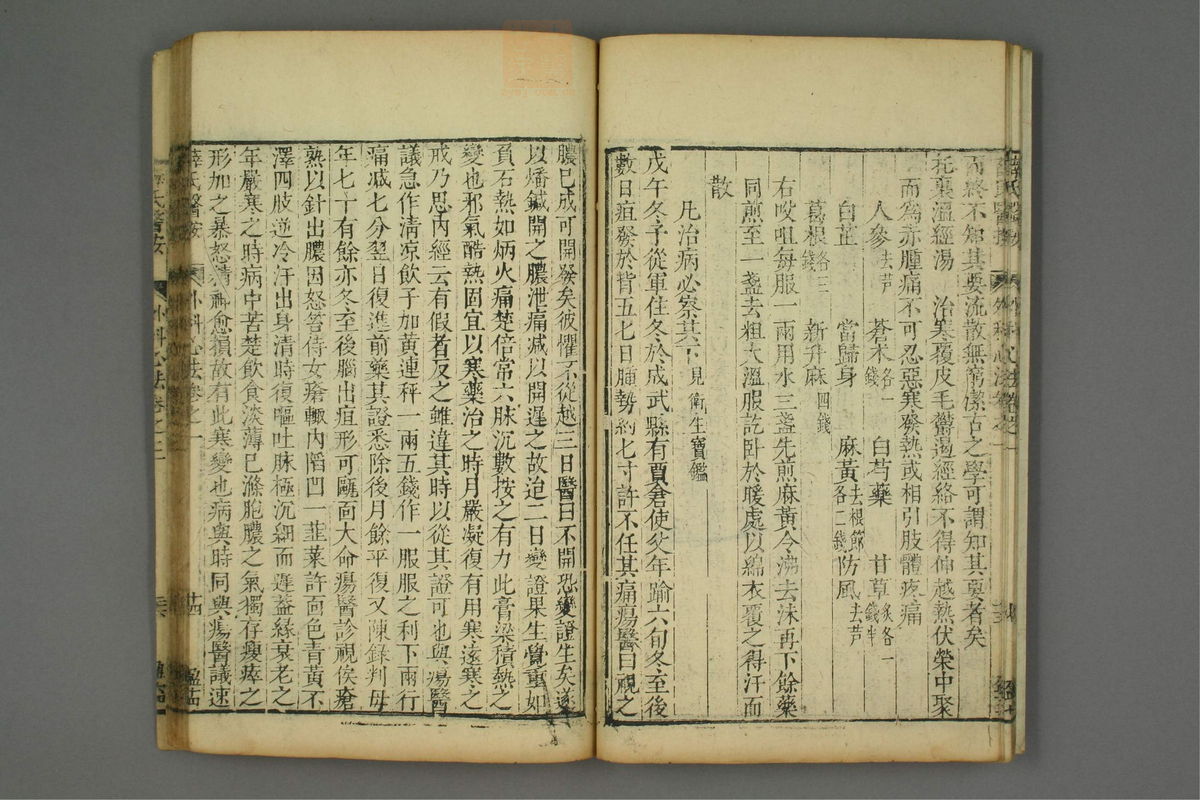 而終不知其要流散無窮潔古之學可謂知其要者矣
托裏溫經湯 治寒覆皮毛鬱遏經絡不得伸越熱伏榮中聚
而為赤腫痛不可忍惡寒發熱或相引肢體疼痛
人參去芦 蒼术各一錢 白芍藥 甘草炙各一錢半
白芷 當歸身 麻黃去根節各二錢 防風去芦
葛根各三錢 新升麻四錢
右㕮咀每服一兩用水三盞先煎麻黃令沸去沫再下餘藥
同煎至一盞去粗大溫服訖卧於暖處以綿衣覆之得汗而
散
凡治病必察其下見衛生寶鑑
戊午冬予從軍住冬於成武縣有賈倉使父年踰六旬冬至後
數日疽發於背五七日腫勢約七寸許不任其痛瘍醫曰視之
膿已成可開發矣彼懼不從越三日醫曰不開恐變證生矣遂
以燔鍼開之膿泄痛减以開遲之故迨二日變證果生覺重如
負石熱如炳火痛楚倍常六脉沉數按之有力此膏梁積熱之
變也邪氣酷熱固宜以寒藥治之時月嚴凝復有用寒遠寒之
戒乃思內經云有假者反之雖違其時以從其證可也與瘍醫
議急作清凉飲子加黃連秤一兩五錢作一服服之利下兩行
痛减七分翌日復進前藥其證悉除後月餘平復又陳錄判母
年七十有餘亦冬至後腦出疽形可甌面大命瘍醫診視俟瘡
熟以針出膿因怒笞侍女瘡輙內陷凹一韮菜許面色青黃不
澤四肢逆冷汗出身清時復嘔吐脉極沉細而遲葢緣衰老之
年嚴寒之時病中苦楚飲食淡薄已滌肥膿之氣獨存瘦瘁之
形加之暴怒精神愈損故有此寒變也病與時同與瘍醫議速
薛氏醫按 外科心法卷之二